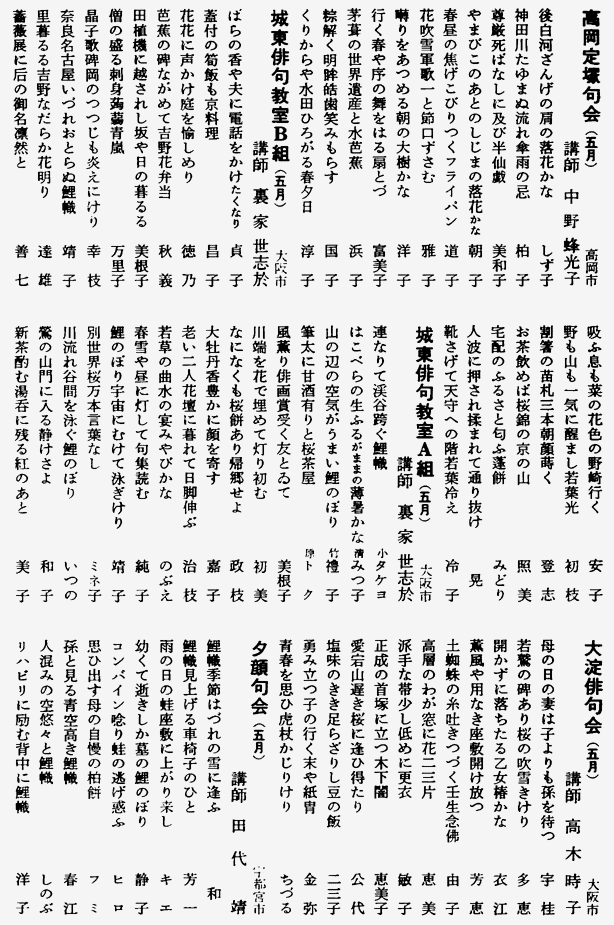 高岡定塚句会(五月)
講師 中野蜂光子 高岡市
後白河ざんげの肩の落花かな しず子
神田川たゆまぬ流れ傘雨の忌 柏子
尊厳死ばなしに及び半仙戯 美和子
やまびこのあとのしじまの落花かな 朝子
春昼の焦げこびりつくフライパン 道子
花吹雪軍歌一と節口ずさむ 雅子
囀りをあつめる朝の大樹かな 洋子
行く春や序の舞をはる扇とづ 富美子
茅葺の世界遺産と水芭蕉 浜子
粽解く明眸皓歯笑みもらす 国子
くりからや水田ひろがる春夕日 淳子
城東俳句教室B組(五月)
講師 裏家世志於 大阪市
ばらの香や夫に電話をかけたくなり 貞子
蓋付の筍飯も京料理 昌子
花花に声かけ庭を愉しめり 徳乃
芭蕉の碑ながめて吉野花弁当 秋義
田植機に越されし坂や日の暮るる 美根子
僧の盛る刺身蒟蒻青嵐 万里子
晶子歌碑岡のつつじも炎えにけり 幸枝
奈良名古屋いづれおとらぬ鯉幟 靖子
里暮るる吉野なだらか花明り 達雄
薔薇展に后の御名凛然と 善七
吸ふ息も菜の花色の野崎行く 安子
野も山も一気に醒まし若葉光 初枝
割箸の苗札三本朝顔蒔く 登志
お茶飲めば桜錦の京の山 照美
宅配のふるさと匂ふ蓬餅 みどり
人波に押され揉まれて通り抜け 晃
靴さげて天守への階若葉冷え 冷子
城東俳句教室A組(五月)
講師 裏家世志於 大阪市
連なりて渓谷跨ぐ鯉幟 小タケヨ
はこべらの生ふるがままの薄暑かな 清みつ子
山の辺の空気がうまい鯉のぼり 竹禮子
筆太に甘酒有りと桜茶屋 原トク
風薫り俳画賞受く友とゐて 美根子
川端を花で埋めて灯り初む 初美
なになくも桜餅あり帰郷せよ 政枝
大牡丹香豊かに顔を寄す 嘉子
老い二人花壇に暮れて日脚伸ぶ 治枝
若草の曲水の宴みやびかな のぶえ
春雪や昼に灯して句集読む 純子
鯉のぼり宇宙にむけて泳ぎけり 靖子
別世界桜万本言葉なし ミネ子
川流れ谷間を泳ぐ鯉のぼり いつの
鶯の山門に入る静けさよ 和子
新茶酌む湯呑に残る紅のあと 美子
大淀俳句会(五月)
講師 高木時子 大阪市
母の日の妻は子よりも孫を待つ 宇桂
若鷲の碑あり桜の吹雪きけり 多恵
開かずに落ちたる乙女椿かな 衣江
薫風や用なき座敷開け放つ 芳恵
土蜘蛛の糸吐きつづく壬生念佛 由子
高層のわが窓に花二三片 恵美
派手な帯少し低めに更衣 敏子
正成の首塚に立つ木下闇 恵美子
愛宕山遅き桜に逢ひ得たり 公代
塩味のきき足らざりし豆の飯 二三子
勇み立つ子の行く末や紙冑 金弥
青春を思ひ虎杖かじりけり ちづる
夕顔句会(五月)
講師 田代靖 宇都宮市
鯉幟季節はづれの雪に逢ふ 和
鯉幟見上げる車椅子のひと 芳一
雨の日の蛙座敷に上がり来し キエ
幼くて逝きしか墓の鯉のぼり 静子
コンバイン唸り蛙の逃げ惑ふ ヒロ
思ひ出す母の自慢の柏餅 フミ
孫と見る青空高き鯉幟 春江
人混みの空悠々と鯉幟 しのぶ
リハビリに励む背中に鯉幟 洋子